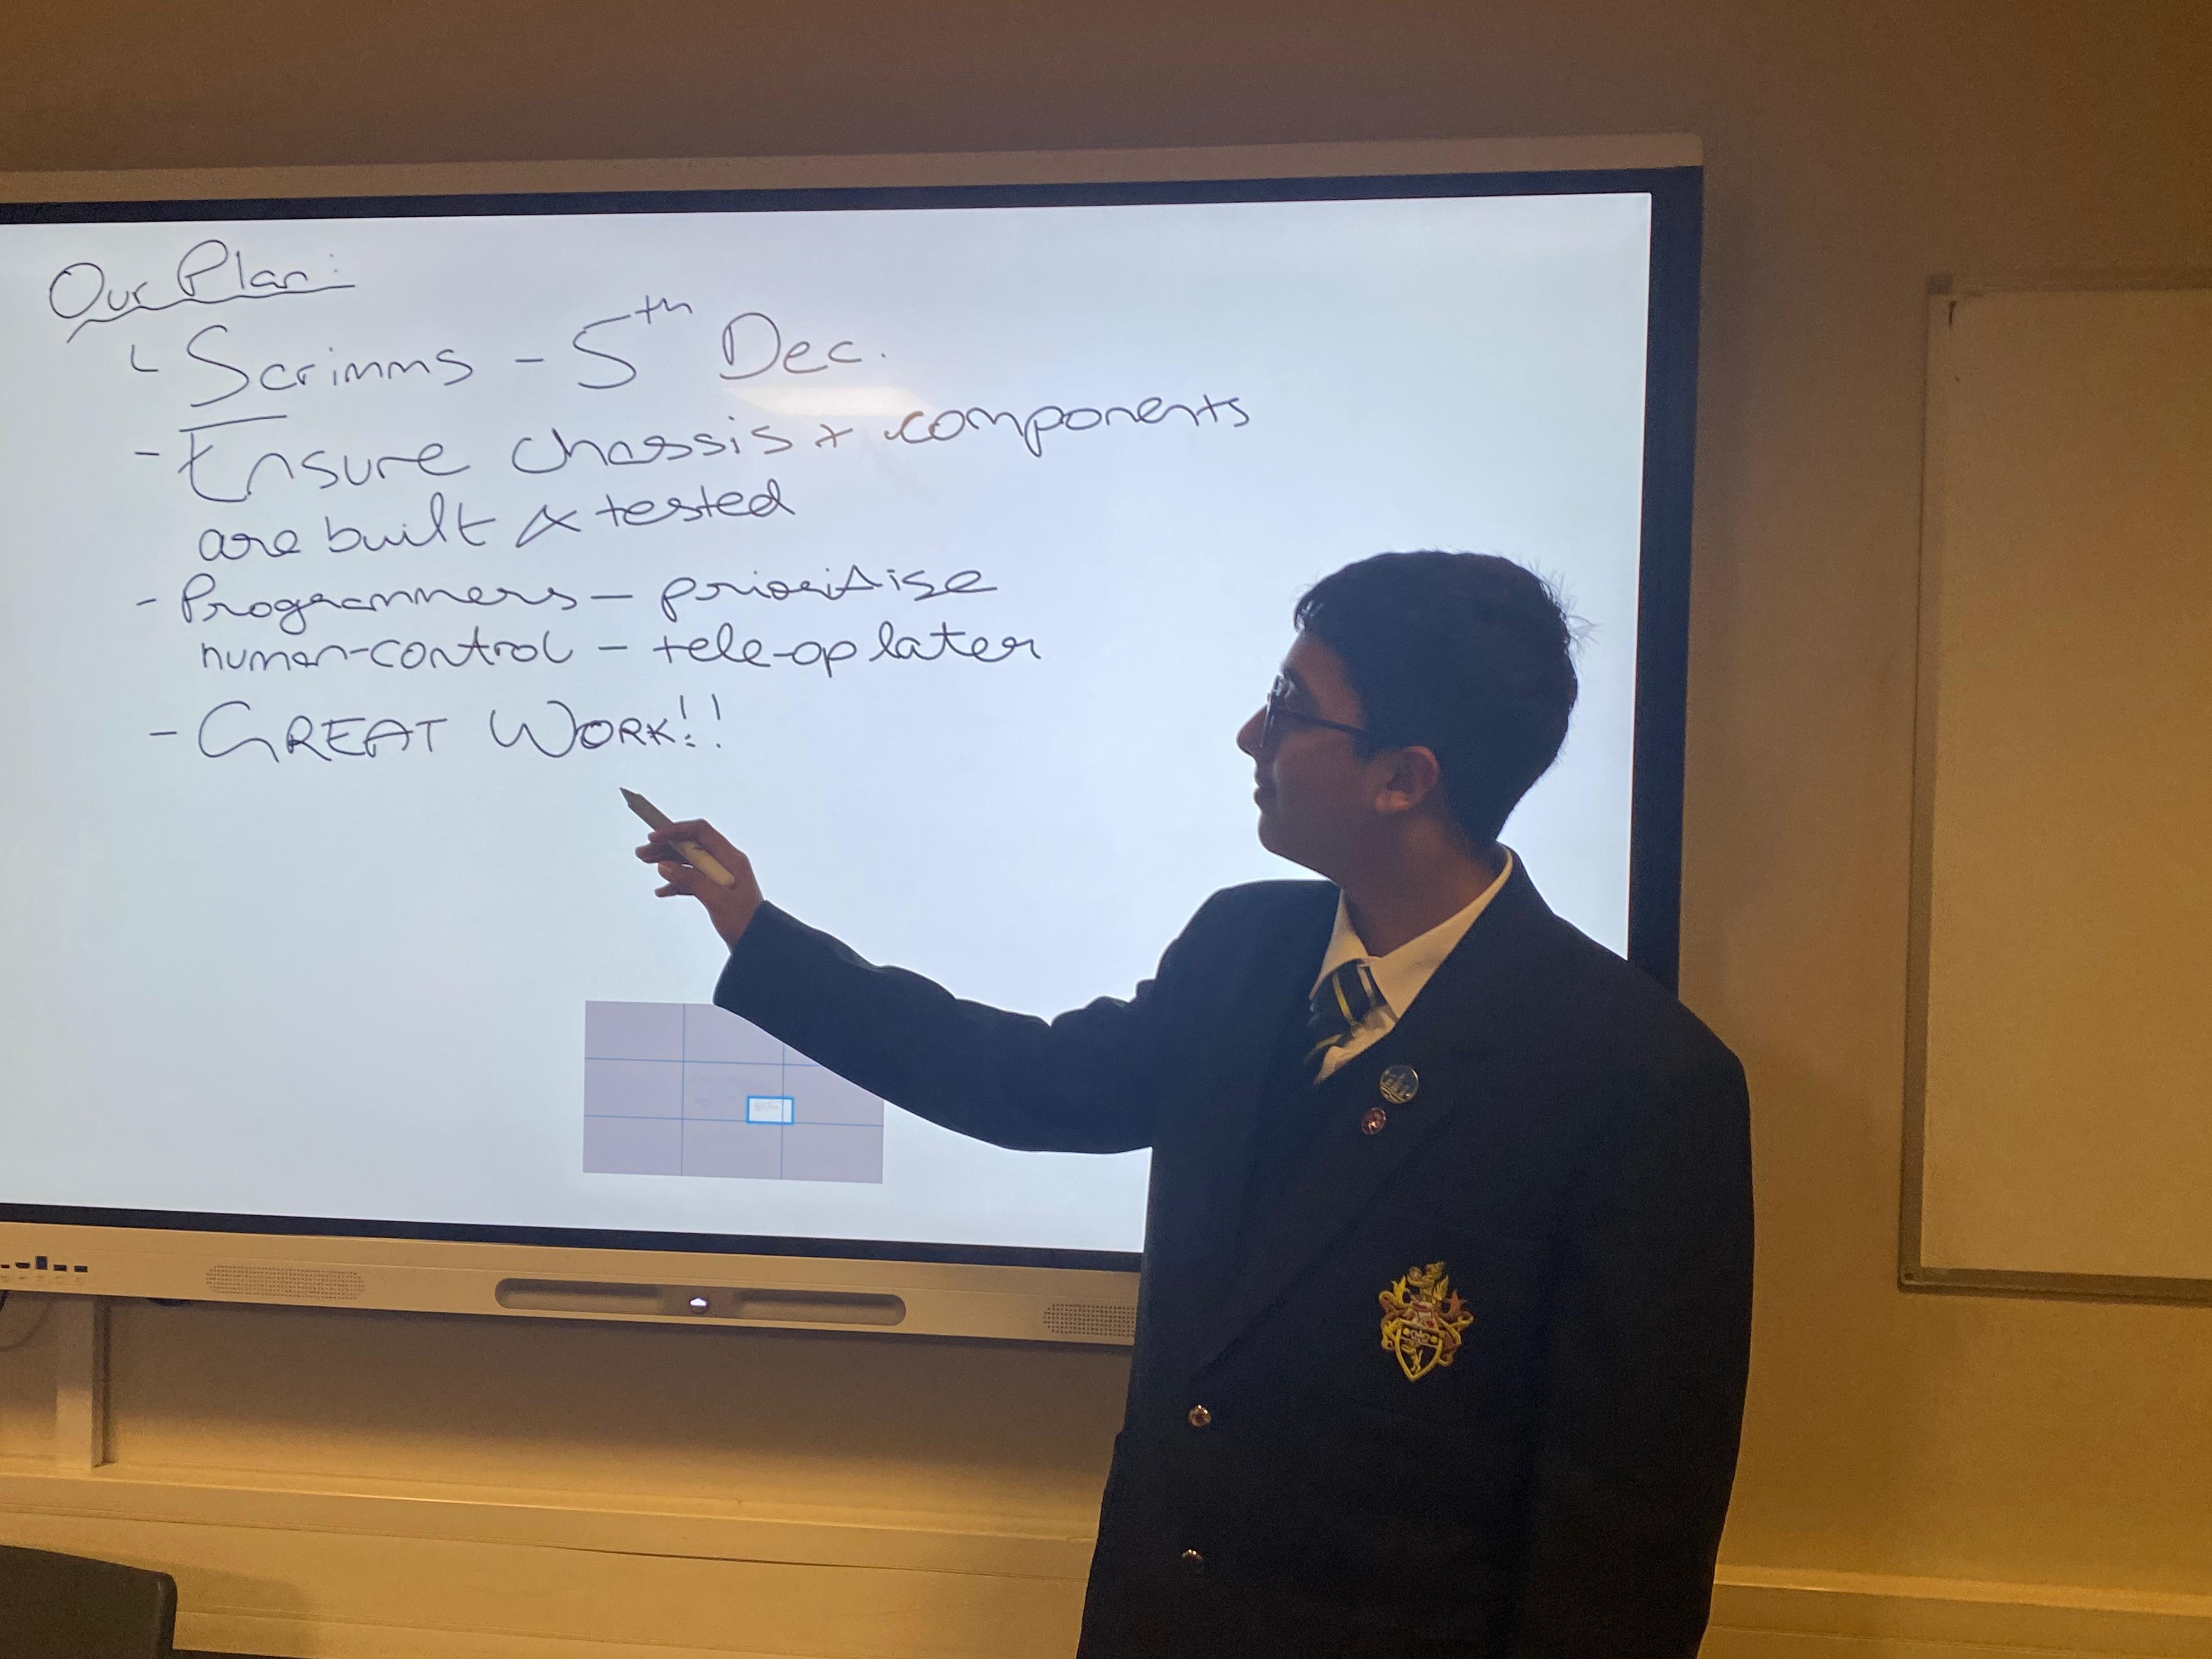 Our Plan:
Scrimms - 5th Dec.
- Ensure chassis + components
are built & tested
- Programmers - prioritise
human-control - tele-op later
- GREAT WORK!!